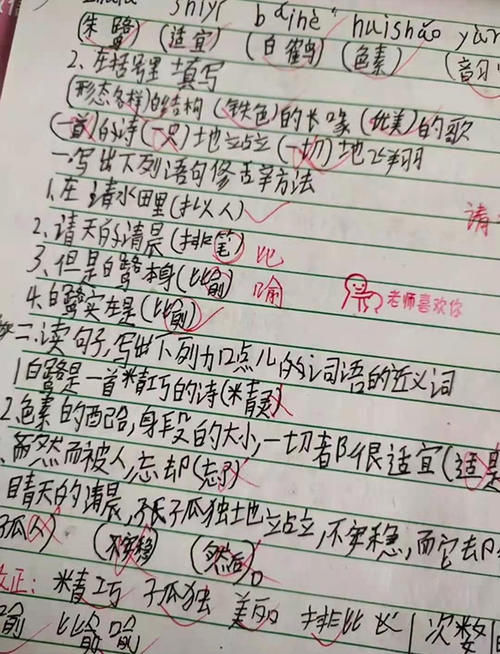 shiyí báihè huìshāo yùn
(朱鹭) (适宜) (白鹤) (色素) (韵
2、在括号里填写
(形态各样)的结构 (铁色)的长喙 (优美)的歌
(一首)的诗 (一只)地站立 (一切)地飞翔
一.写出下列语句修辞方法
1、在清水田里(拟人)
2、清天的清晨(排笔) 比
3、但是白鹭本身(比俞) 喻
4、白鹭实在是(比俞)
老师喜欢你
请
二、读句子,写出下列加点儿的词语的近义词
1白鹭是一首精巧的诗(精灵)
2.色素的配合,身段的大小,一切都很适宜(适
然而被人忘却(忘了)
晴天的清晨,孤独地站立,不安稳,而它却
孤人) (不安稳) (然后)。
改正: 精巧 孤独 美丽 排比 长 次数
喻 比俞喻